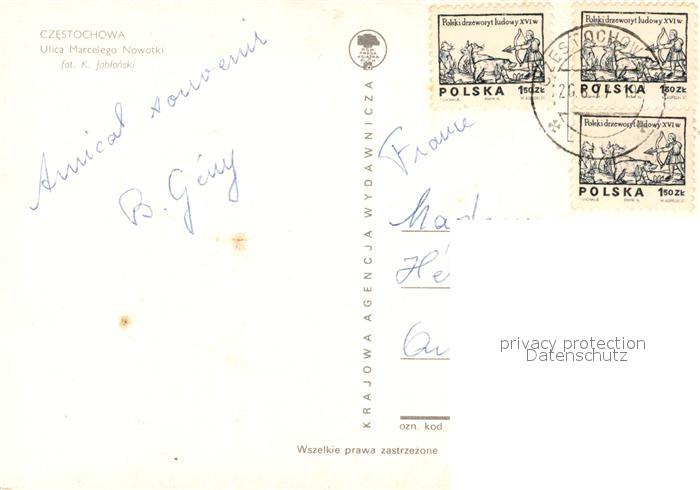 CZĘSTOCHOWA
Ulica Marcelego Nowotki
fot. K. Jabłoński
Amical souvenir
B. Gény
KRAJOWA AGENCJA WYDAWNICZA
Polski drzeworyt ludowy XVI w
POLSKA 1.50 ZŁ
Polski drzeworyt ludowy XVI w
POLSKA 1.50 ZŁ
Polski drzeworyt ludowy XVI w
POLSKA 1.50 ZŁ
CZĘSTOCHOW
France
Hé
privacy protection
Datenschutz
ozn. kod
Wszelkie prawa zastrzeżone